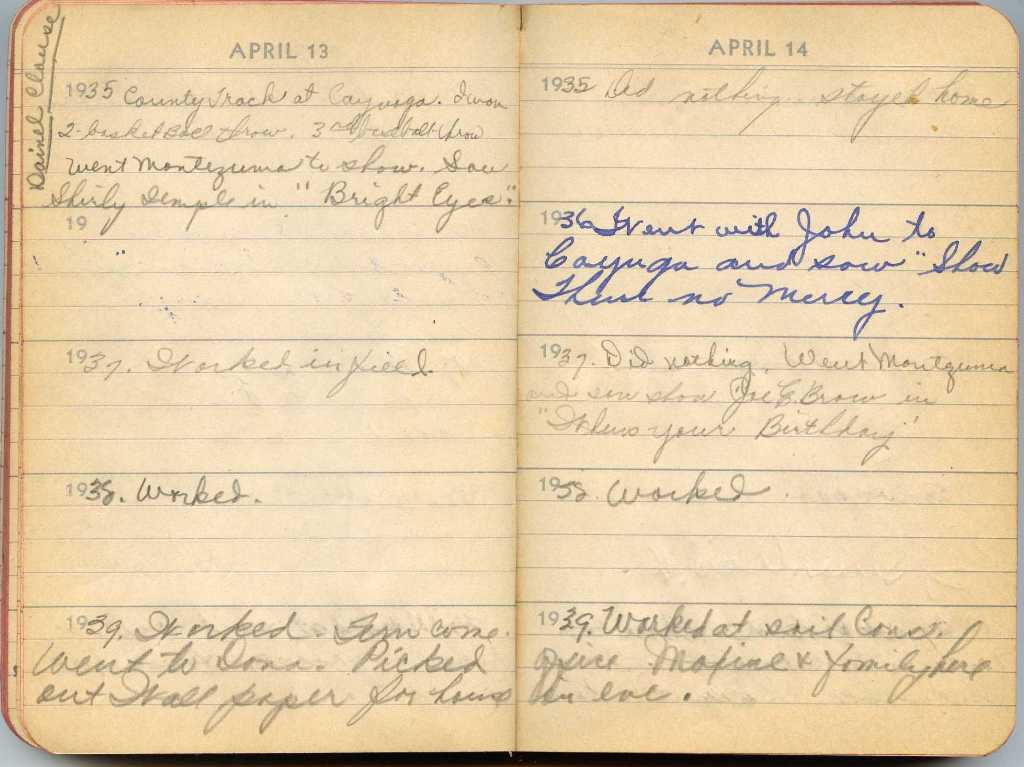 Dainel Clause
APRIL 13
1935 County Track at Cayuga. I won
2-basket Ball throw. 3rd throw
went Montezuma to show. Saw
Shirly Temple in "Bright Eyes".
19
1937. Worked in field.
1938. Worked.
1939. Worked. Gem come.
Went to Dana. Picked
out Wall paper for house
APRIL 14
1935 Did nothing. stayed home
1936 Went with John to
Cayuga and saw "Show
Them no Mercy.
1937. Did nothing. Went Montezuma
and saw show Joe E. Brown in
"Whens your Birthday"
1938. Worked.
1939. Worked at soil Cons.
office Maxine & family here
in eve.